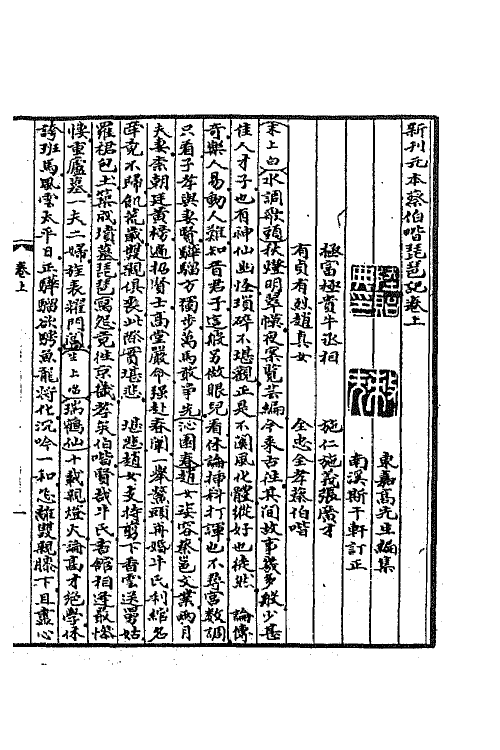 新刊元本蔡伯喈琵琶記卷上
東嘉高先生編集
南溪斯干軒訂正
極富極貴牛丞相 施仁施義張廣才
有貞有烈趙真女 全忠全孝蔡伯喈
末上白水調歌頭秋燈明翠幙夜案覽芸編今來古往其間故事幾多般少甚
佳人才子也有神仙幽怪瑣碎不堪觀正是不關風化體縱好也徒然 論傳
奇樂人易動人難知音君子這般另做眼兒看休論插科打諢也不尋宮數調
只看子孝與妻賢驊騮方獨步萬馬敢爭先沁園春趙女姿容蔡邕文業兩月
夫妻奈朝廷黃榜遍招賢士高堂嚴命強赴春闈一舉鰲頭再婚牛氏利綰名
牽竟不歸飢荒歲雙親俱喪此際實堪悲 堪悲趙女支持剪下香雲送舅姑
羅裙包土築成墳墓琵琶寫怨竟往京畿孝矣伯喈賢哉牛氏書館相逢最慘
悽重廬墓一夫二婦旌表耀門閭生上唱瑞鶴仙十載親燈火論高才絕學休
誇班馬風雲太平日正驊騮欲騁魚龍將化沉吟一和怎離雙親膝下且盡心
卷上
一